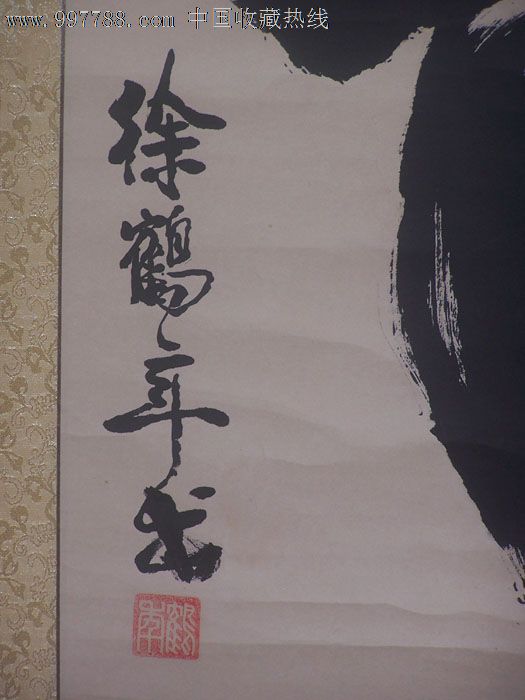 www.997788.com 中国收藏热线
徐鶴年书
鶴年